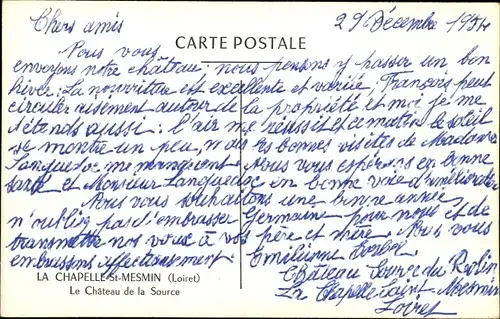 Chers amis
29 Décembre 1954
CARTE POSTALE
Nous vous
envoyons notre château: nous pensons y passer un bon
hiver: La nourriture est excellente et variée; Français peut
circuler aisement autour de la propriété et moi je me
détends aussi: l'air me réussit et ce matin le soleil
se montre un peu, mais les bonnes visites de Madame
Languedoc me manquent. Nous vous espérons en bonne
santé et Monsieur Languedoc en bonne voie d'amélioration
Nous vous souhaitons une bonne année,
n'oubliez pas d'embrasser Germaine pour nous et de
transmettre nos voeux à vos père et mère. Nous vous
embrassons affectueusement. Emilienne
LA CHAPELLE-St-MESMIN (Loiret)
Le Château de la Source
Château Source du
La Chapelle Saint Mesmin
Loiret